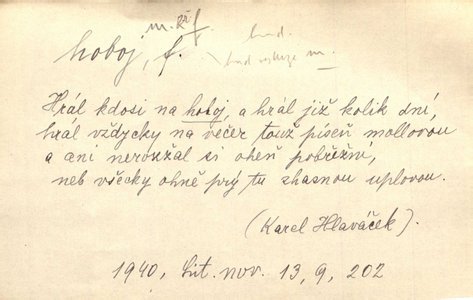 m. ž f
hoboj, f.
hud.
hud. m.
Hrál kdosi na hoboj, a hrál již kolik dní,
hrál vždycky na večer touž píseň mollovou
a ani nerozžal si oheň pobřežní,
neb všecky ohně prý tu shasnou uplovou.
(Karel Hlaváček).
1940, Lit. nov. 13, 9, 202